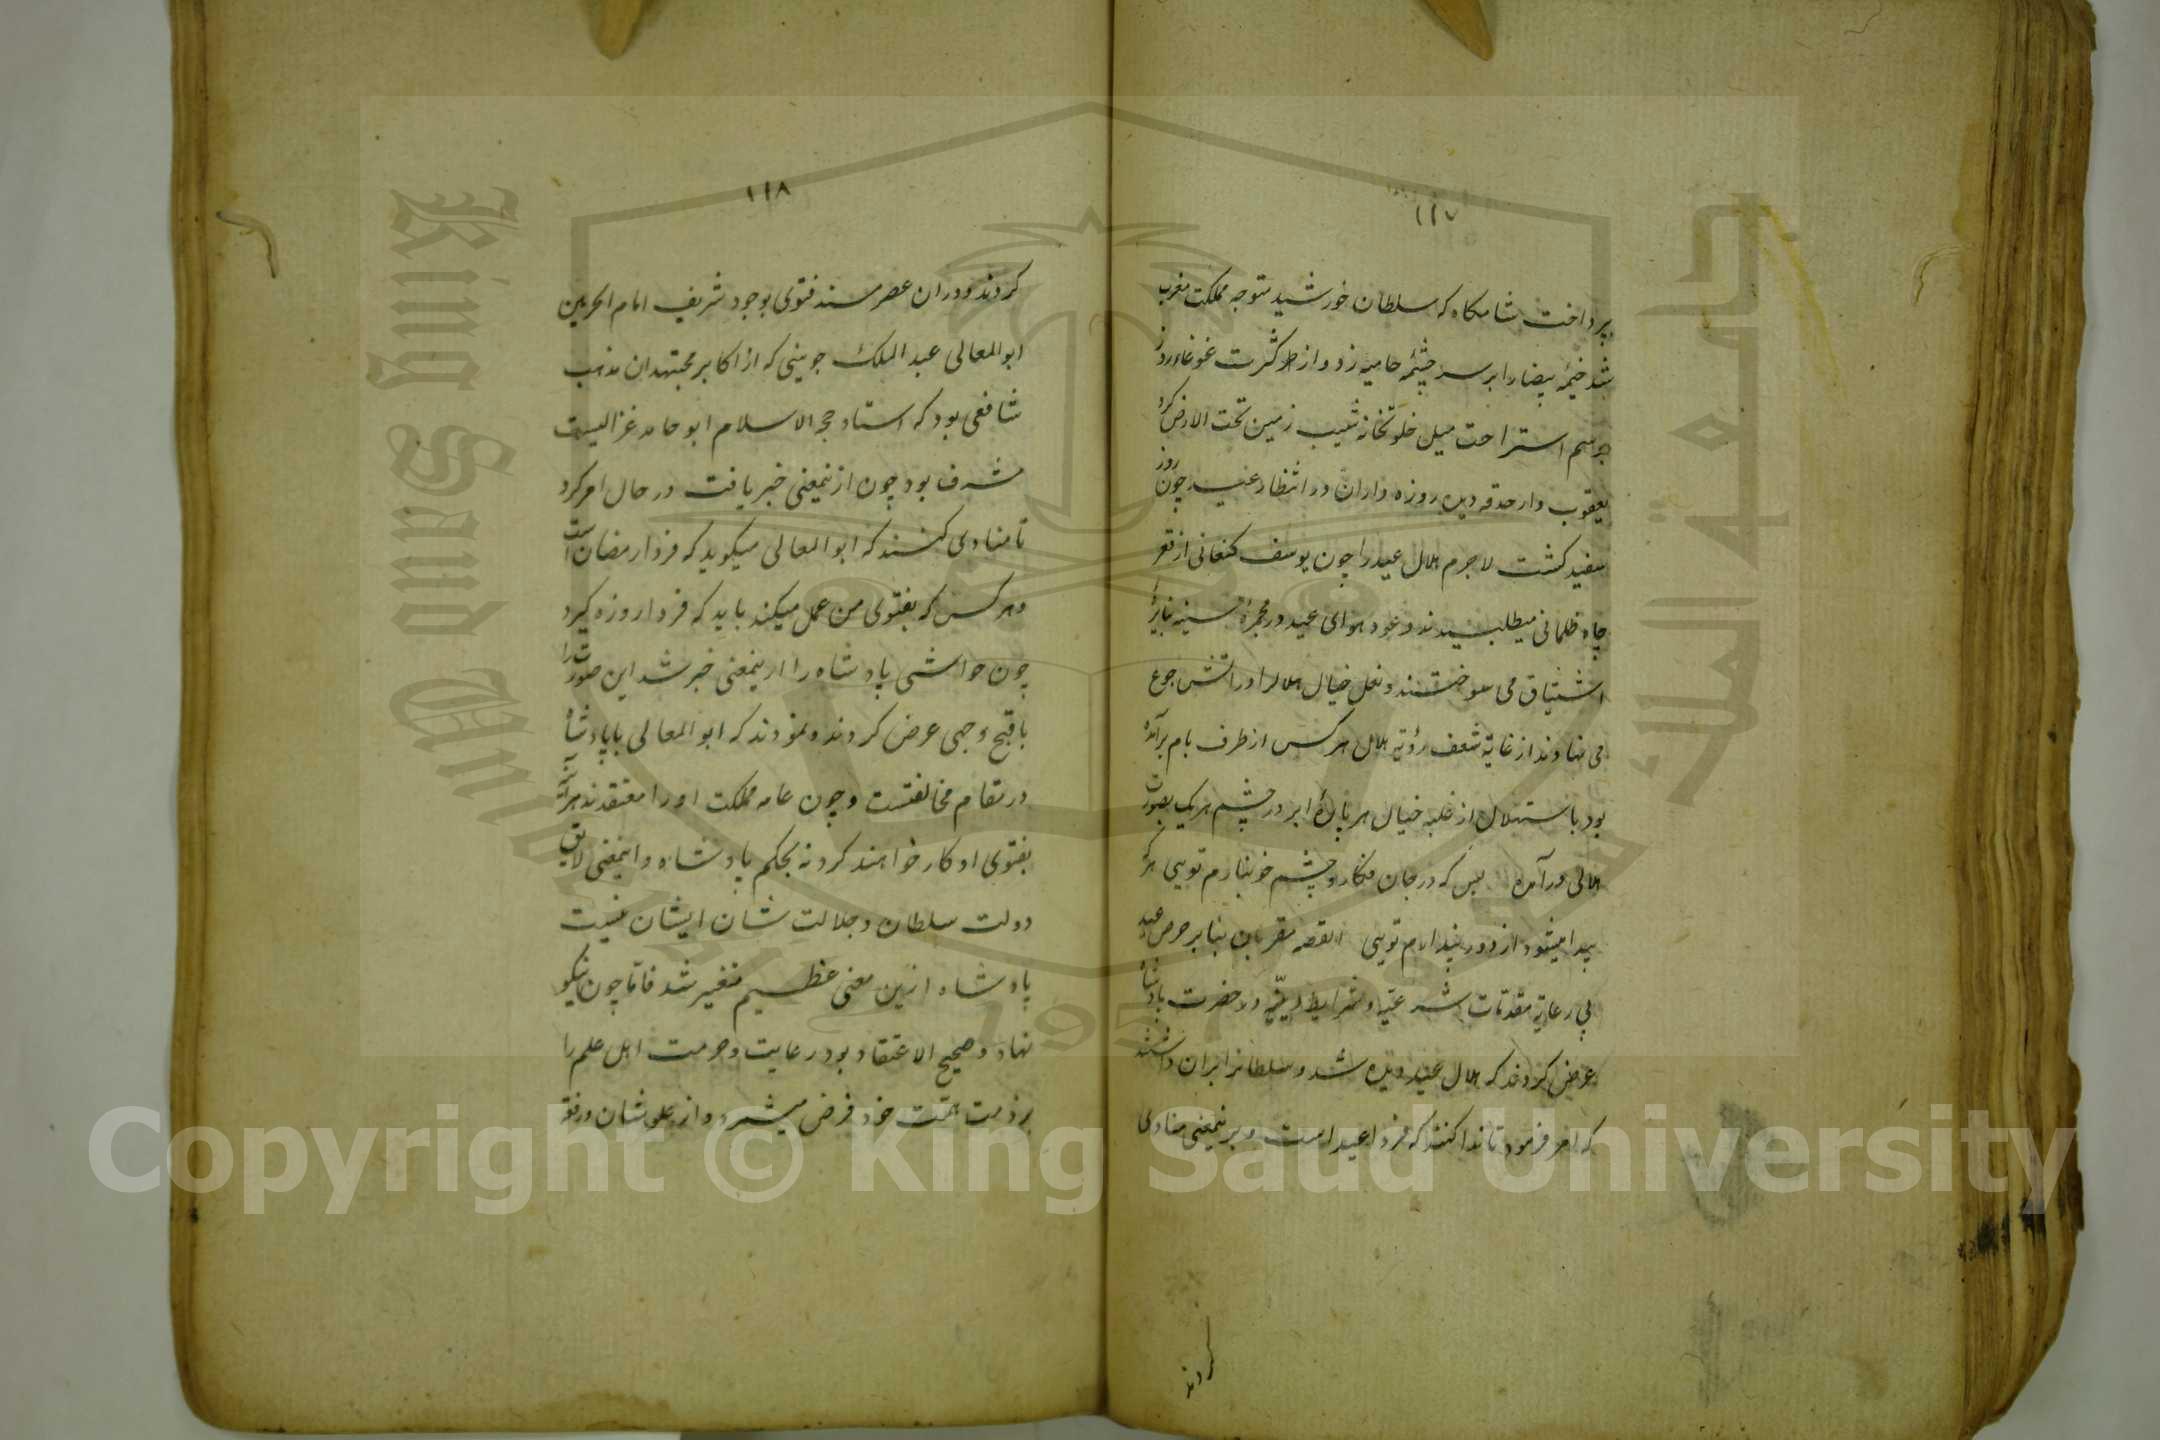 ١١٧
پرداخت شامکاه که سلطان خورشید متوجه مملکت مغرب
شد خیمه بیضا را بر سر چشمه حامیه زد و از کثرت غوغاء روز
برسم استراحت میل خلوتخانه شیب زمین تحت الارض کرد
یعقوب وار حدقه دیده روزه داران در انتظار عید چون روز
سفید کشت لاجرم هلال عید را چون یوسف کنعانی از قعر
چاه ظلمانی میطلبیدند و عود هوای عید در مجمرهٔ سینه بنایرهٔ
اشتیاق می سوختند و نعل خیال هلال را در آتش جوع
می نهادند از غایة شعف رؤیة هلال هر کس از طرف بام برآمده
بود باستهلال از غلبه خیال هر پارهٔ ابر در چشم هر یک بصورت
هلالی در آمده بس که در جان فکار و چشم خونبارم تویی هر که
پیدا میشود از دور پندارم تویی القصه مقربان بنا بر حرص عید
بی رعایة مقدمات شرعیّه و شرایط دینیّه در حضرت پادشاه
عرض کردند که هلال عید دیده شد و سلطانرا بران داشتند
که امر فرمود تا ندا کنند که فردا عید است و برینمعنی منادی
کردند
١١٨
کردند و دران عصر مسند فتوی بوجود شریف امام الحرمین
ابو المعالی عبد الملک جوینی که از اکابر مجتهدان مذهب
شافعی بود که استاد حجة الاسلام ابو حامد غزالیست
مشرف بود چون ازینمعنی خبر یافت در حال امر کرد
تا منادی کنند که ابو المعالی میکوید که فردا رمضان است
و هر کس که بفتوی من عمل میکند باید که فردا روزه کیرد
چون حواشی پادشاه را ازینمعنی خبر شد این صورت را
باقبح وجهی عرض کردند و نمودند که ابو المعالی با پادشاه
در مقام مخالفتست و چون عامه مملکت او را معتقدند هرآینه
بفتوی او کار خواهند کرد نه بحکم پادشاه و اینمعنی لایق
دولت سلطان و جلالت شان ایشان نیست
پادشاه ازین معنی عظیم متغیر شد فامّا چون نیکو
نهاد و صحیح الاعتقاد بود رعایت و حرمت اهل علم را
بر ذمت همّت خود فرض میشمرد و از علو شان و رفعة
King Saud University
1957
Copyright © King Saud University